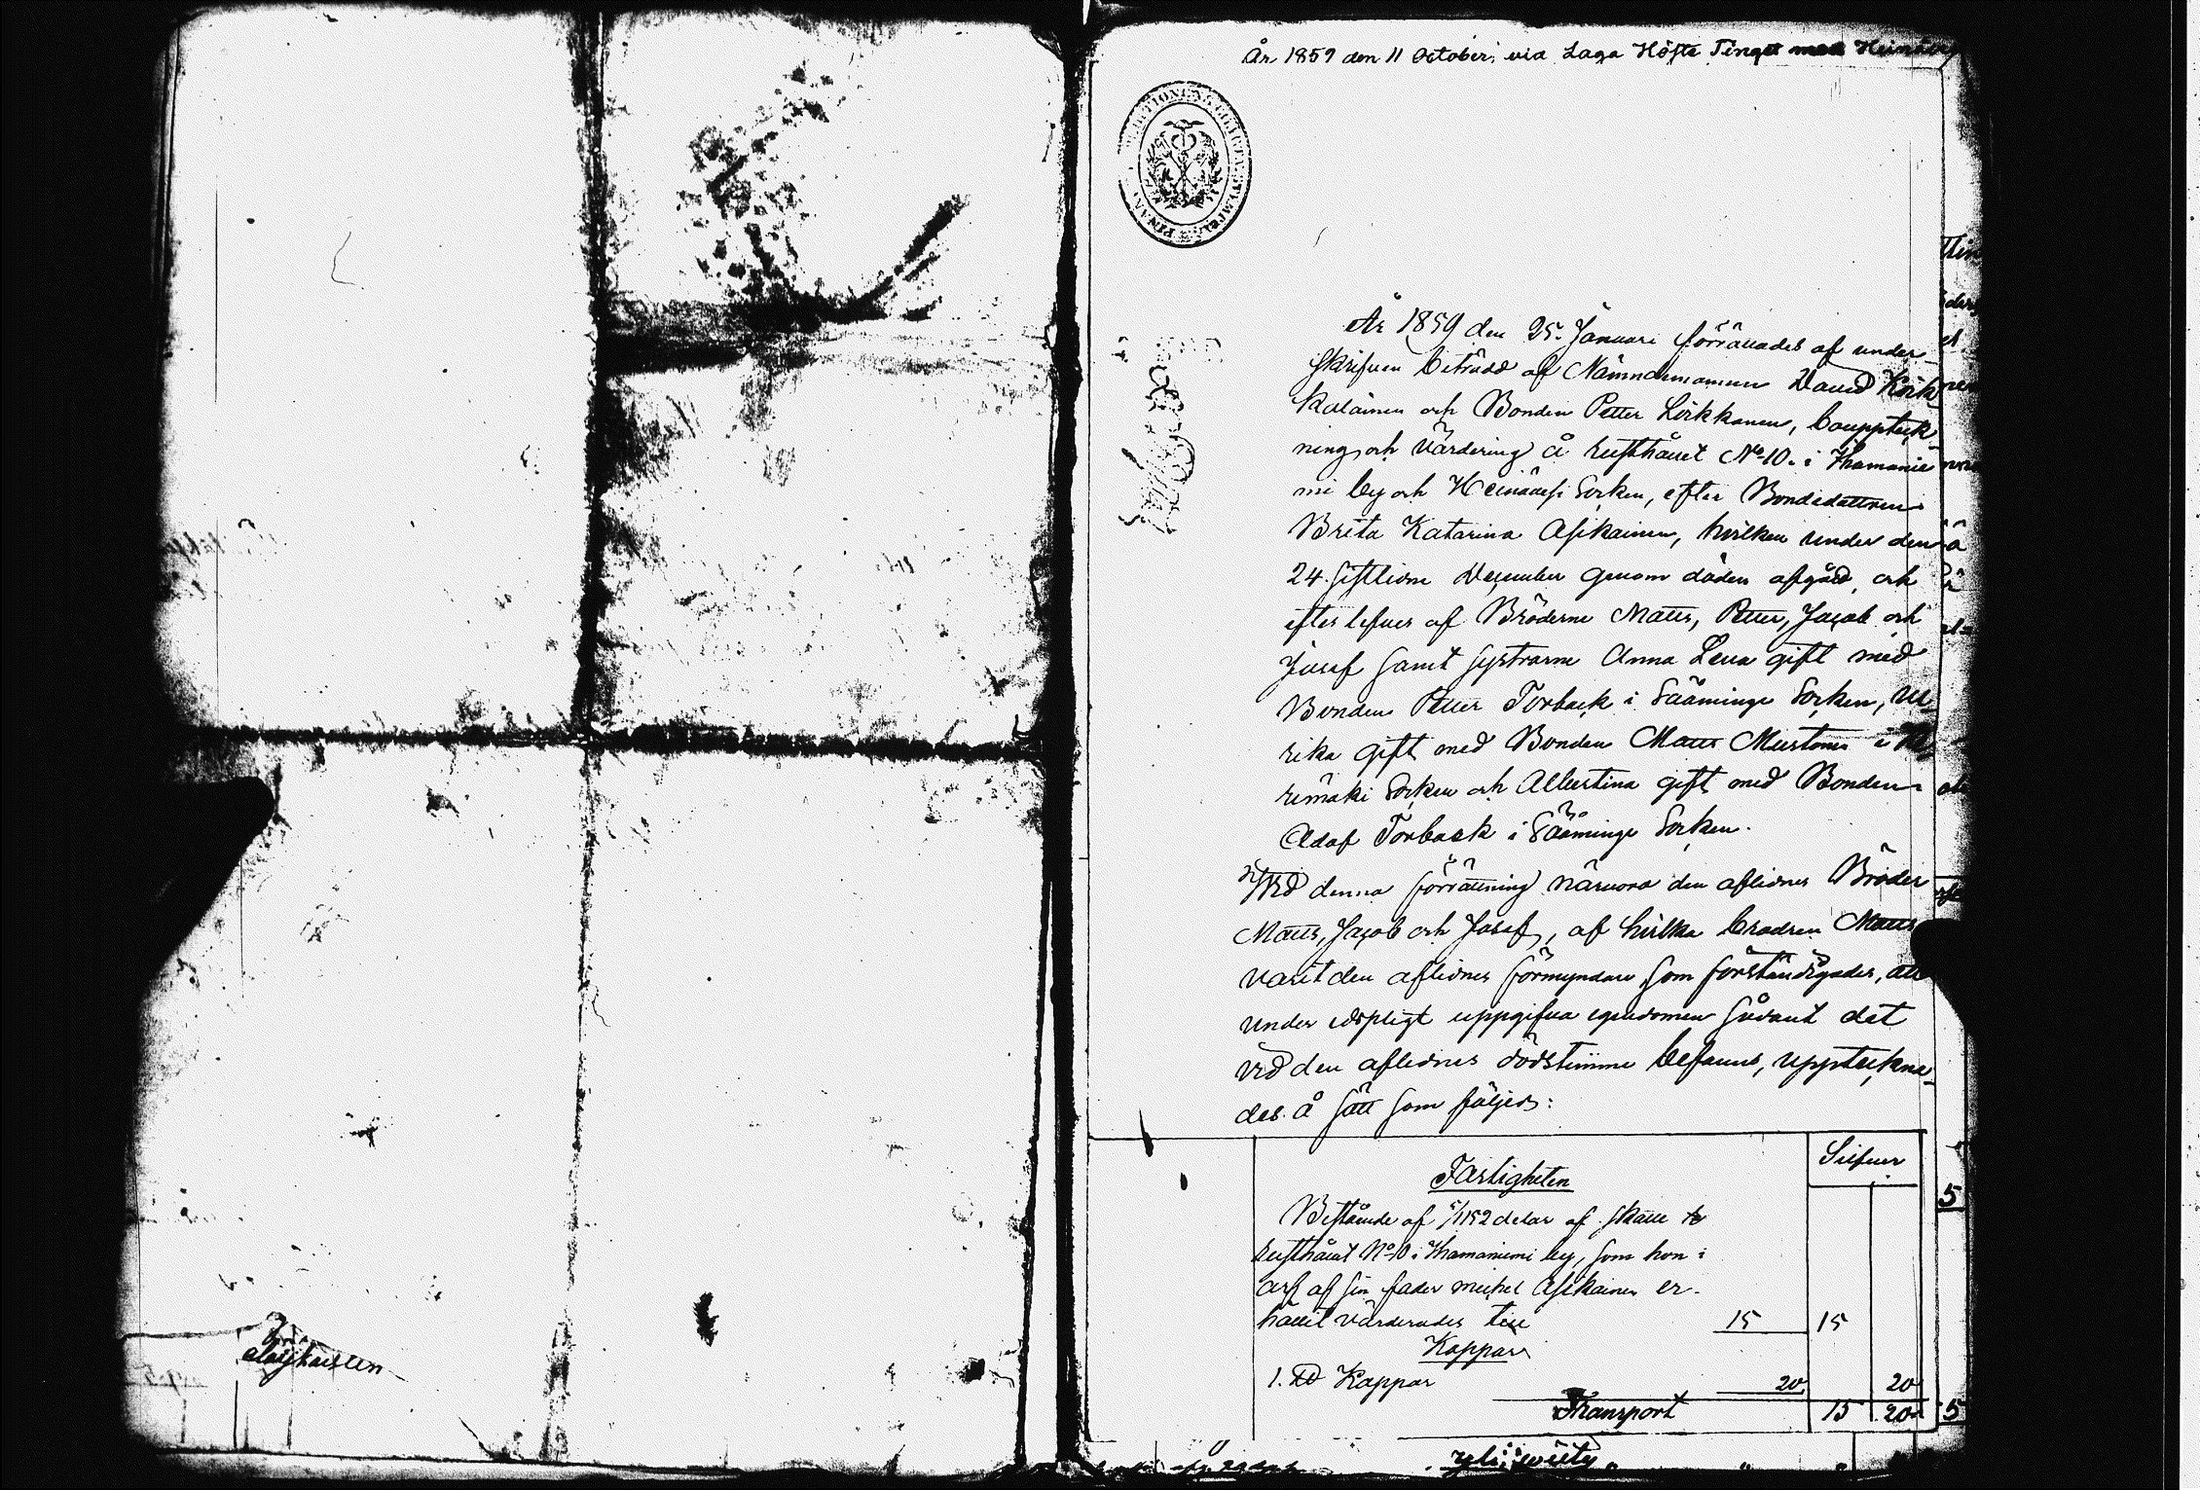 År 1859 den 11 October, vid Laga Höste Tinget med Heinäv
År 1859 den 25. Januari förrättades af under-
skrifven biträdd af Nämndemannen David Kärk
kalainen och Bonden Petter Lirkkonen, bouppteck-
ning och värdering å rusthållet No 10. i Ihamanie
mi by och Heinävesi Socken, efter Bondedottren
Brita Katarina Asikainen, hvilken under den
24. sistlidne December genom döden afgåd, och
efterlefves af Bröderne Matts, Petter, Jacob och
Josef samt systrarne Anna Lena gift med
Bonden Petter Torback i Sääminge Socken, Ul-
rika gift med Bonden Matts Mustonen i Ke
remäki Socken och Albertina gift med Bonden
Adaf Torback i Sääminge Socken.
Vid denna förrättning närvoro den aflidnes Bröder
Matts, Jacob och Josef, af hvilka brodren Matts
varit den aflidnes förmyndare som förständigades, att
under edspligt uppgifva egendomen sådant det
vid den aflidnes dödstimme befanns, upptecknа-
des å sätt som följer:
Silfver
Fastigheten
Bestående af 5/1152 delar af skatte
rusthållet No 10 i Ihamaniemi by, som hon i
arf af sin fader Michel Asikainen er-
hållit värderades till 15 15
Koppar
1. Koppar 20 20
Transport 15 20
5
5
Asikainen